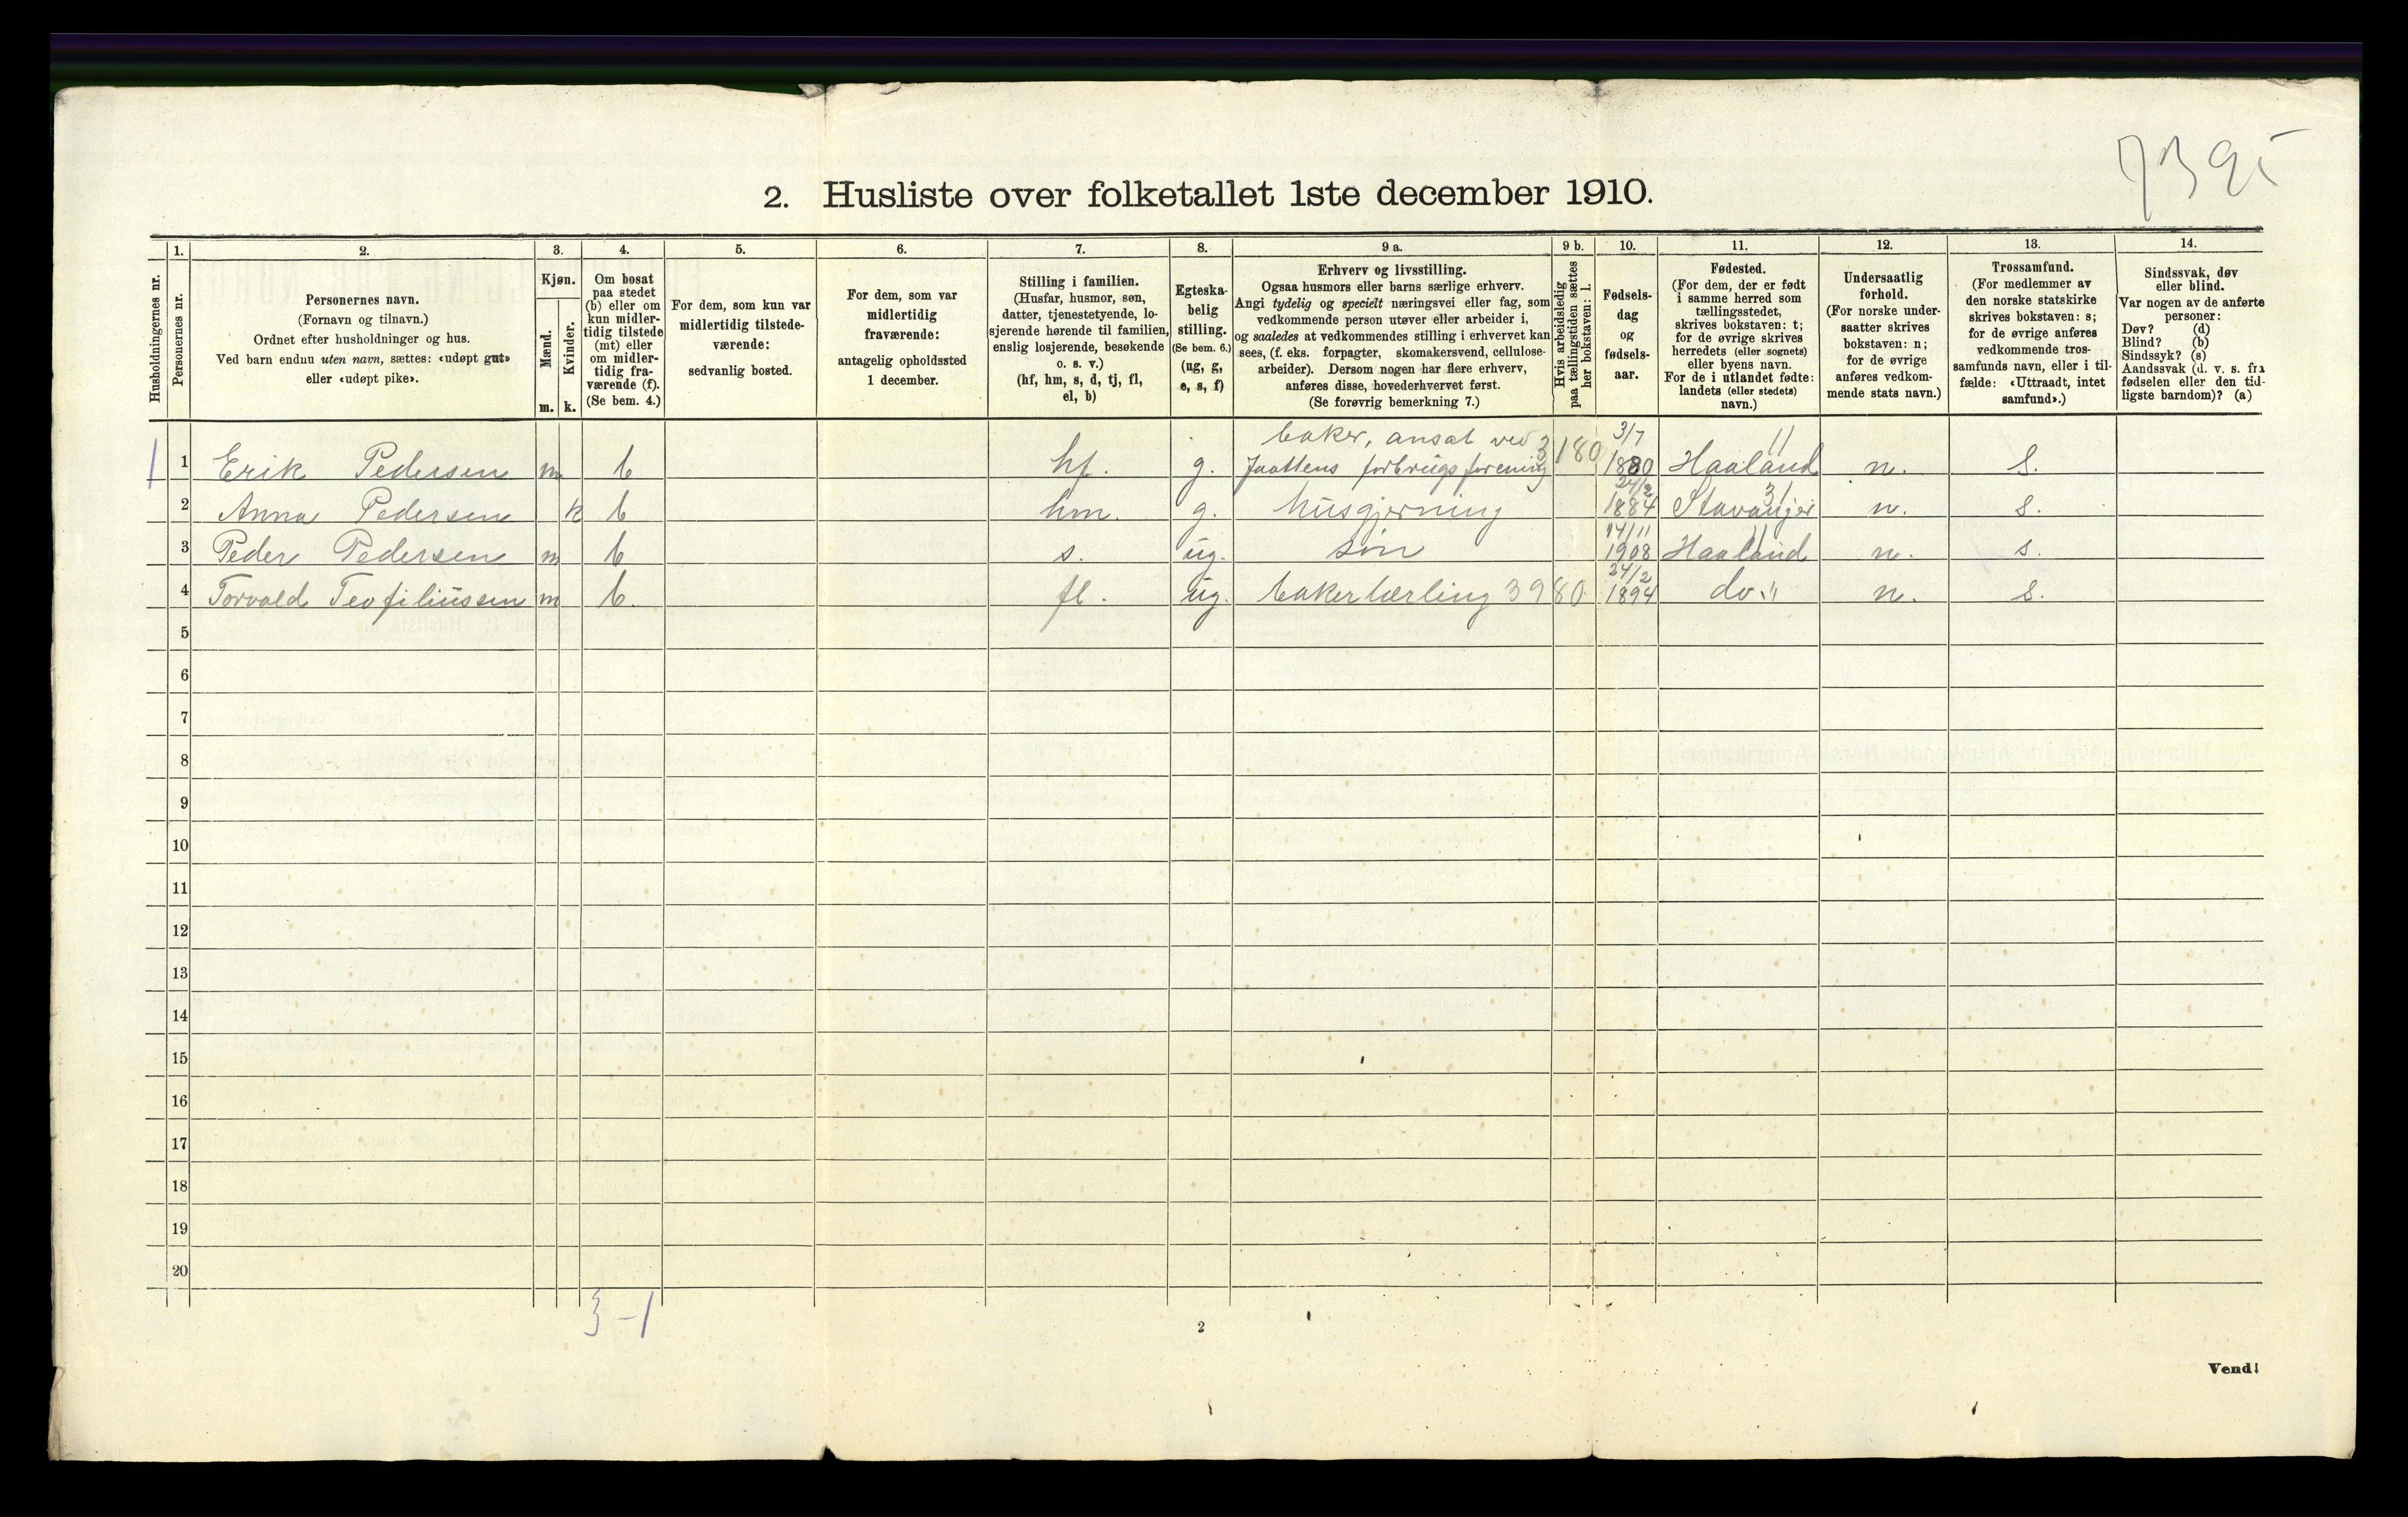 7395
2. Husliste over folketallet 1ste december 1910.
Husholdningernes nr.
1.
Personernes nr.
2.
Personernes navn.
(Fornavn og tilnavn.)
Ordnet efter husholdninger og hus.
Ved barn endnu uten navn, sættes: «udøpt gut»
eller «udøpt pike».
3.
Kjøn.
Mænd.
Kvinder.
m. k.
4.
Om bosat
paa stedet
(b) eller om
kun midler-
tidig tilstede
(mt) eller
om midler-
tidig fra-
værende (f).
(Se bem. 4.)
5.
For dem, som kun var
midlertidig tilstede-
værende:
sedvanlig bosted.
6.
For dem, som var
midlertidig
fraværende:
antagelig opholdssted
1 december.
7.
Stilling i familien.
(Husfar, husmor, søn,
datter, tjenestetyende, lo-
sjerende hørende til familien,
enslig losjerende, besøkende
o. s. v.)
(hf, hm, s, d, tj, fl,
el, b)
8.
Egteska-
belig
stilling.
(Se bem. 6.)
(ug, g,
e, s, f)
9 a.
Erhverv og livsstilling.
Ogsaa husmors eller barns særlige erhverv.
Angi tydelig og specielt næringsvei eller fag, som
vedkommende person utøver eller arbeider i,
og saaledes at vedkommendes stilling i erhvervet kan
sees, (f. eks. forpagter, skomakersvend, cellulose-
arbeider). Dersom nogen har flere erhverv,
anføres disse, hovederhvervet først.
(Se forøvrig bemerkning 7.)
9 b.
Hvis arbeidsledig
paa tællingstiden sættes
her bokstaven: l.
10.
Fødsels-
dag
og
fødsels-
aar.
11.
Fødested.
(For dem, der er født
i samme herred som
tællingsstedet,
skrives bokstaven: t;
for de øvrige skrives
herredets (eller sognets)
eller byens navn.
For de i utlandet fødte:
landets (eller stedets)
navn.)
12.
Undersaatlig
forhold.
(For norske under-
saatter skrives
bokstaven: n;
for de øvrige
anføres vedkom-
mende stats navn.)
13.
Trossamfund.
(For medlemmer av
den norske statskirke
skrives bokstaven: s;
for de øvrige anføres
vedkommende tros-
samfunds navn, eller i til-
fælde: «Uttraadt, intet
samfund».)
14.
Sindssvak, døv
eller blind.
Var nogen av de anførte
personer:
Døv? (d)
Blind? (b)
Sindssyk? (s)
Aandssvak (d. v. s. fra
fødselen eller den tid-
ligste barndom)? (a)
baker, ansat ved 3/7
1 1 Erik Pedersen m b hf. g. Jaattens forbrugsforening 3180 1880 Haaland 11 n. s.
24/2
2 Anna Pedersen k b hm. g. husgjerning 1884 Stavanger 31 n. s.
14/11
3 Peder Pedersen m b s. ug. søn 1908 Haaland 11 n. s.
24/2
4 Torvald Teofiliussen m b. fl. ug. bakerlærling 3980 1894 do. 11 n. s.
5
6
7
8
9
10
11
12
13
14
15
16
17
18
19
20
3-1
2
Vend!